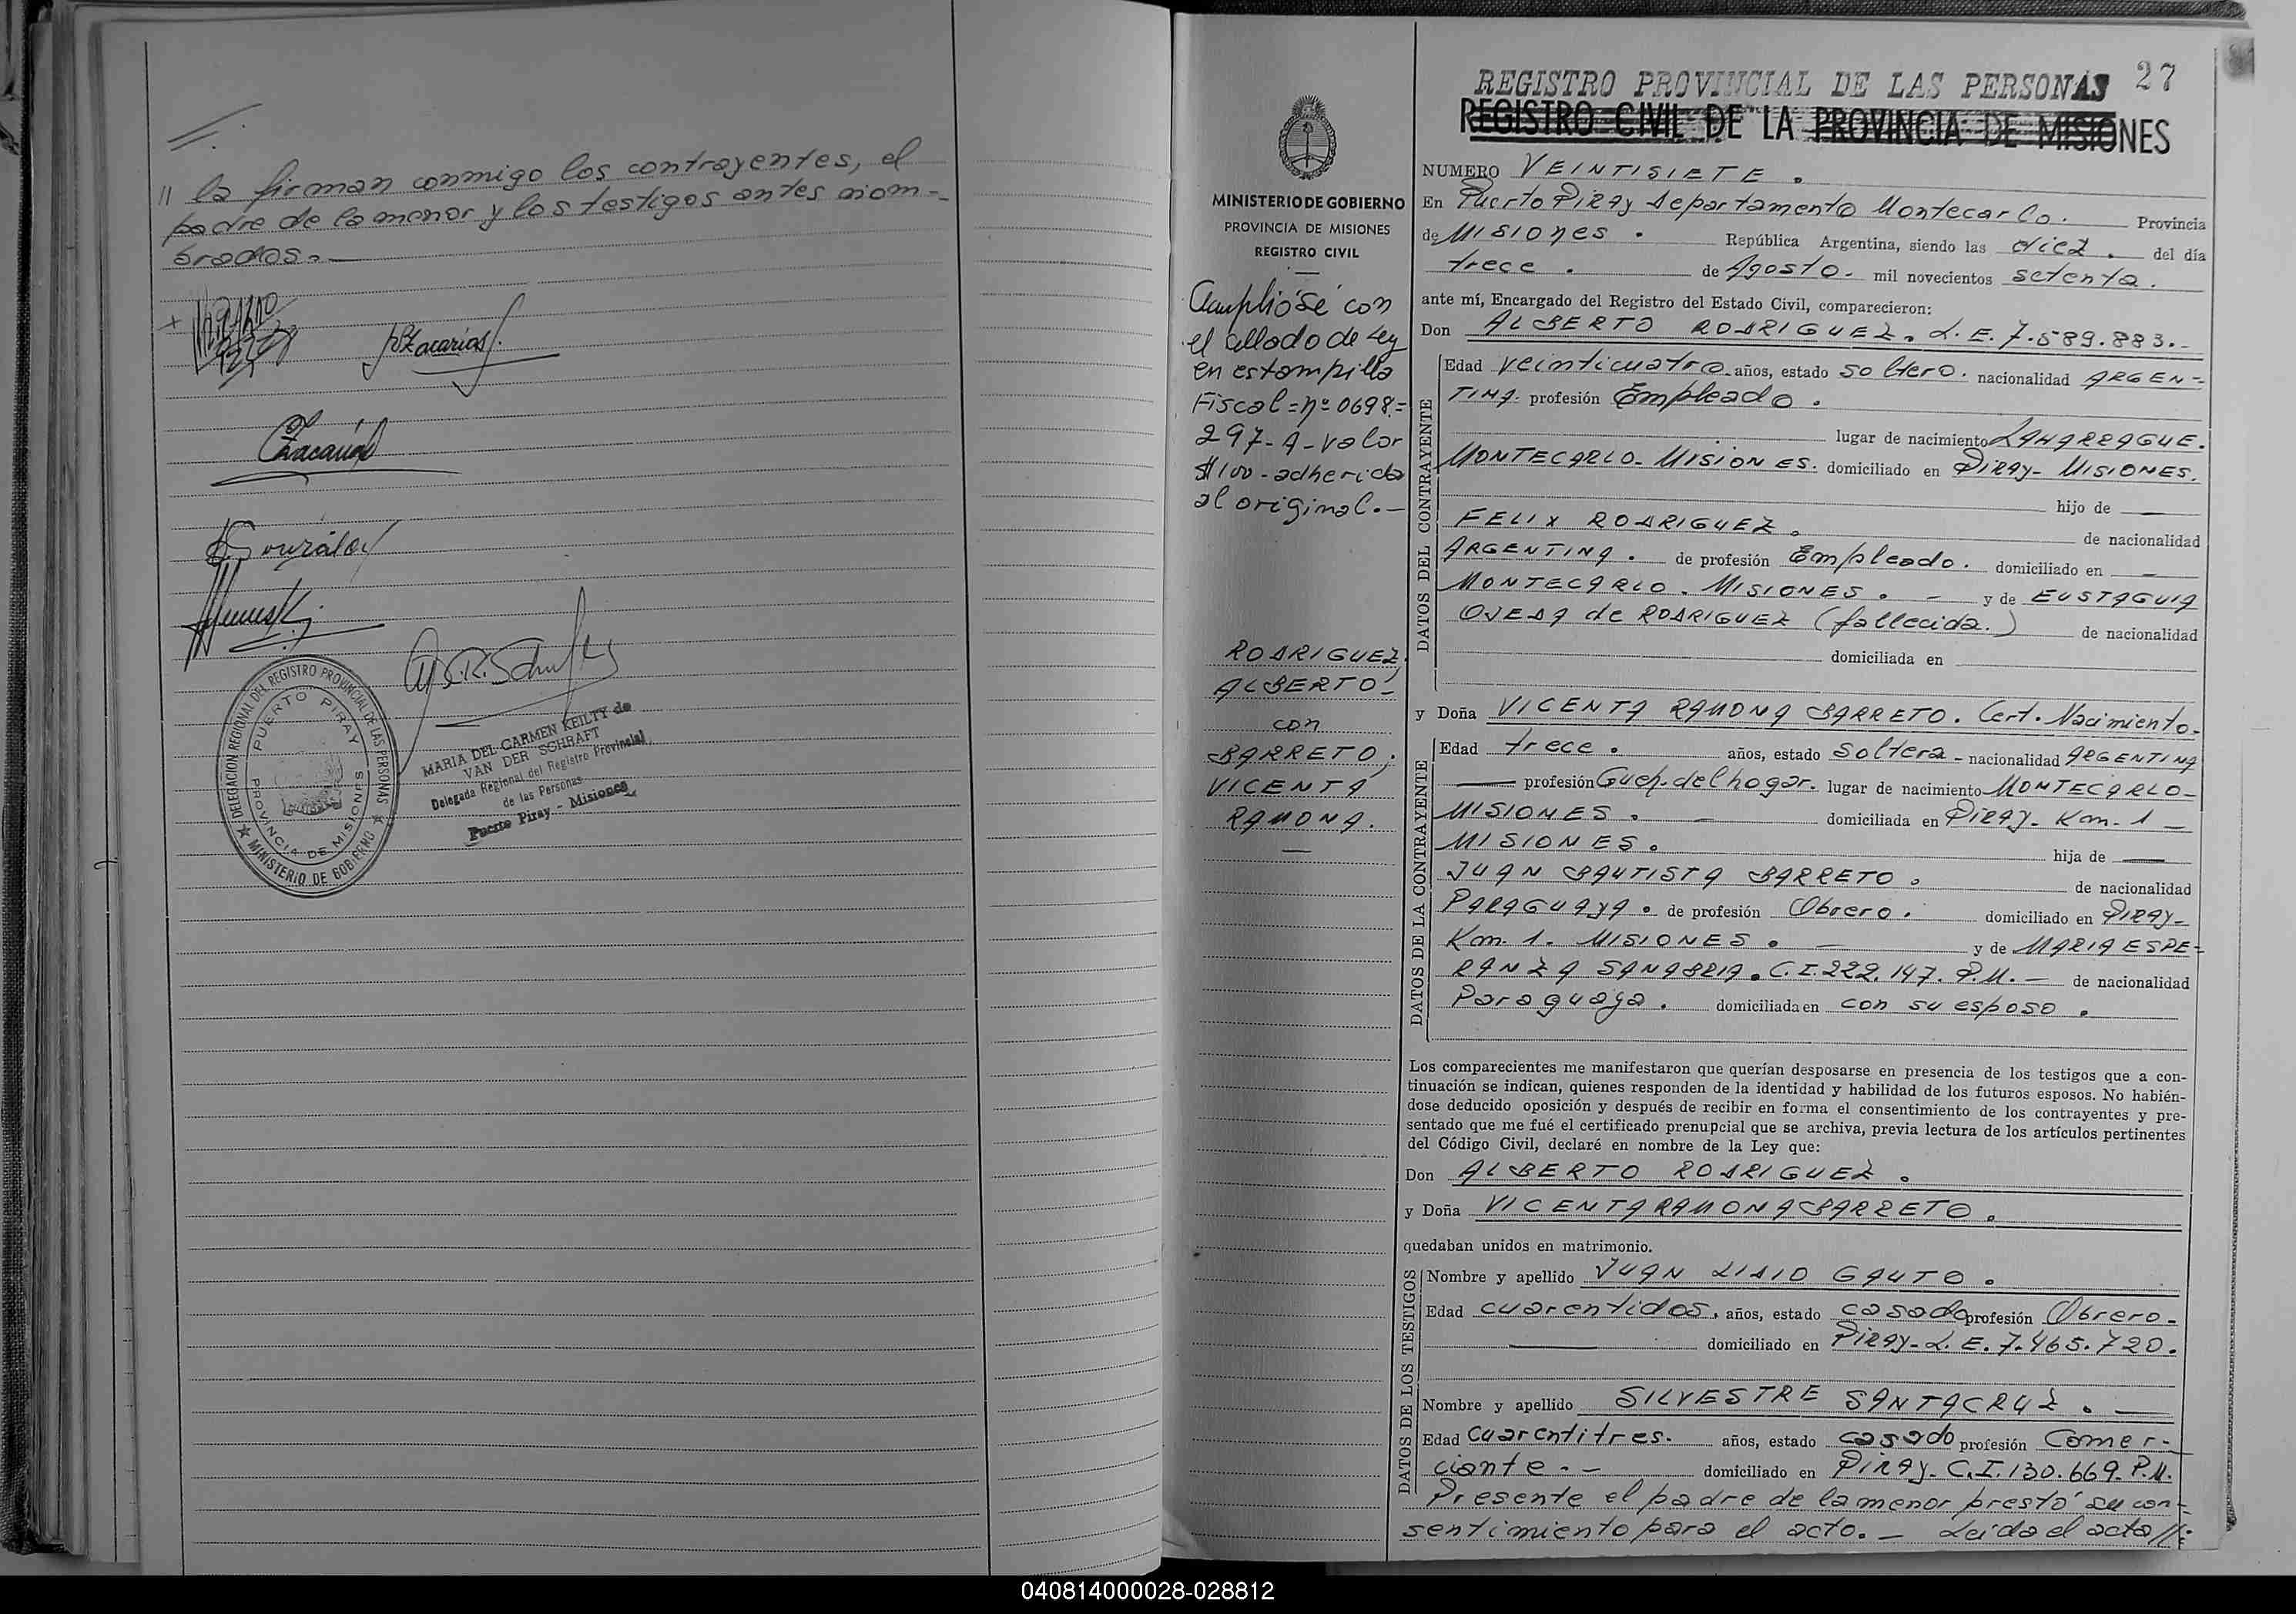 //.
// la firman conmigo los contrayentes, el
padre de la menor y los testigos antes nom-
brados.-
Zacarias
Zacarias
González
DELEGACION REGIONAL DEL REGISTRO PROVINCIAL DE LAS PERSONAS
PUERTO PIRAY
PROVINCIA DE MISIONES
★ MINISTERIO DE GOBIERNO ★
MARIA DEL CARMEN KEILTY de
VAN DER SCHRAFT
Delegada Regional del Registro Provincial
de las Personas
Puerto Piray - Misiones
MINISTERIO DE GOBIERNO
PROVINCIA DE MISIONES
REGISTRO CIVIL
Ampliose con
el sellado de Ley
en estampilla
Fiscal=nº 0698.=
297-A-valor
$100-adherida
al original.-
RODRIGUEZ,
ALBERTO-
con
BARRETO,
VICENTA
RAMONA.
REGISTRO PROVINCIAL DE LAS PERSONAS 27
REGISTRO CIVIL DE LA PROVINCIA DE MISIONES
NUMERO VEINTISIETE.
En Puerto Piray Departamento Montecarlo. Provincia
de MISIONES. República Argentina, siendo las diez. del día
trece. de Agosto. mil novecientos setenta.
ante mí, Encargado del Registro del Estado Civil, comparecieron:
Don ALBERTO RODRIGUEZ. L.E. 7.589.883.-
DATOS DEL CONTRAYENTE
Edad veinticuatro. años, estado soltero. nacionalidad ARGEN-
TINA. profesión Empleado.
lugar de nacimiento LAHARRAGUE.
MONTECARLO-MISIONES. domiciliado en PIRAY-MISIONES.
hijo de —
FELIX RODRIGUEZ. de nacionalidad
ARGENTINA. de profesión Empleado. domiciliado en —
MONTECARLO. MISIONES. - y de EUSTAQUIA
OJEDA de RODRIGUEZ (fallecida.) de nacionalidad
domiciliada en
y Doña VICENTA RAMONA BARRETO. Cert. Nacimiento.
DATOS DE LA CONTRAYENTE
Edad trece. años, estado soltera - nacionalidad ARGENTINA
— profesión Queh. del hogar. lugar de nacimiento MONTECARLO-
MISIONES. - domiciliada en PIRAY- Km. 1 -
MISIONES. hija de —
JUAN BAUTISTA BARRETO. de nacionalidad
PARAGUAYA. de profesión Obrero. domiciliado en PIRAY-
Km. 1. MISIONES. - y de MARIA ESPE-
RANZA SANABRIA. C.I. 222.147. P.M. - de nacionalidad
Paraguaya. domiciliada en con su esposo.
Los comparecientes me manifestaron que querían desposarse en presencia de los testigos que a con-
tinuación se indican, quienes responden de la identidad y habilidad de los futuros esposos. No habién-
dose deducido oposición y después de recibir en forma el consentimiento de los contrayentes y pre-
sentado que me fué el certificado prenupcial que se archiva, previa lectura de los artículos pertinentes
del Código Civil, declaré en nombre de la Ley que:
Don ALBERTO RODRIGUEZ.
y Doña VICENTA RAMONA BARRETO.
quedaban unidos en matrimonio.
DATOS DE LOS TESTIGOS
Nombre y apellido JUAN LIDIO GAUTO.
Edad cuarentidos. años, estado casado profesión Obrero-
— domiciliado en PIRAY-L.E. 7.465.720.
Nombre y apellido SILVESTRE SANTACRUZ. -
Edad cuarentitres. años, estado casado profesión Comer-
ciante.- domiciliado en PIRAY-C.I. 130.669. P.M.
Presente el padre de la menor prestó su con-
sentimiento para el acto. - Leida el acta //:
040814000028-028812